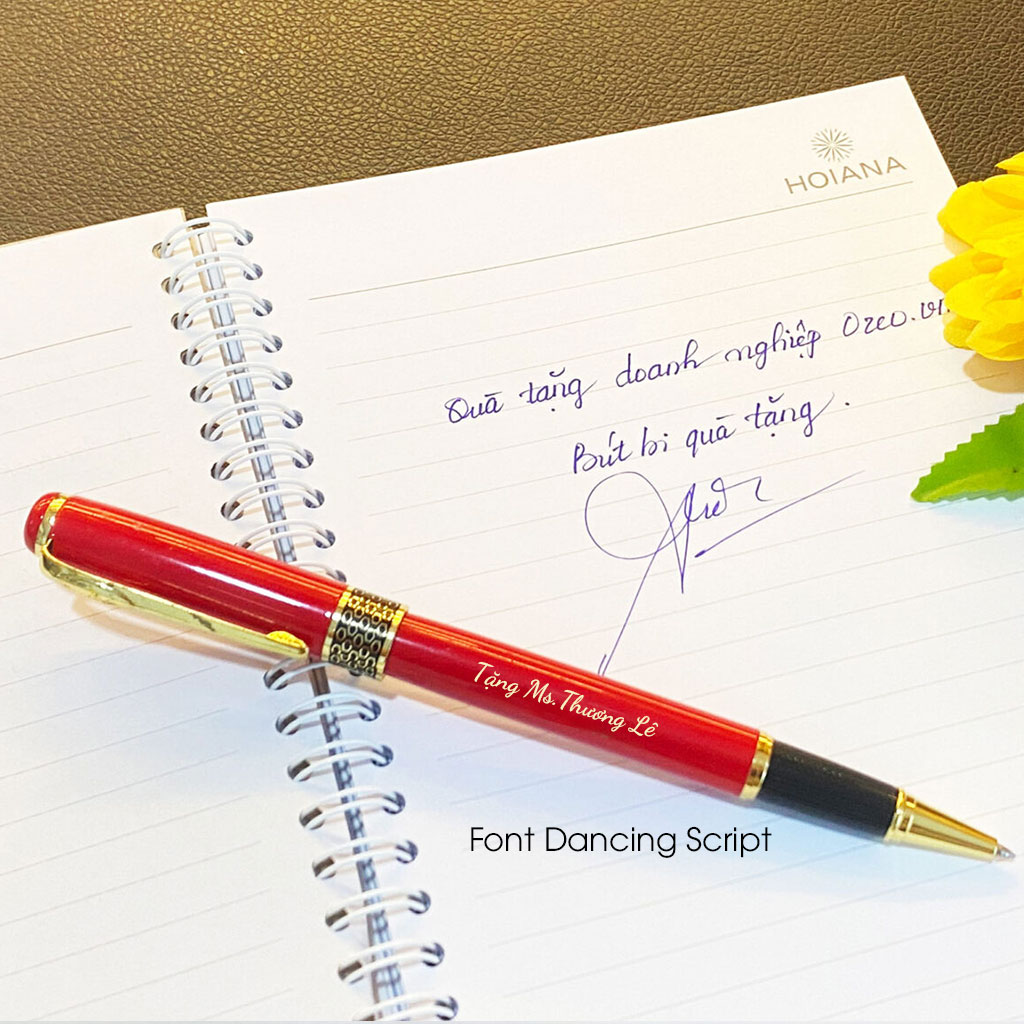 HOIANA
Quà tặng doanh nghiệp Ozeo.vn
Bút bi quà tặng.
Tặng Ms. Thương Lê
Font Dancing Script